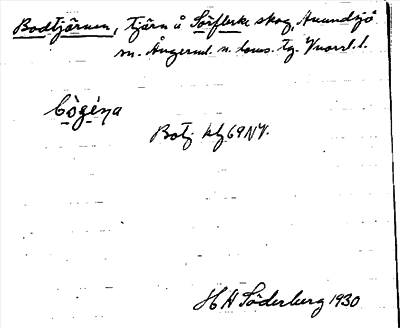 Bodtjärnen, tjärn å Sörflärke skog, Anundsjö
sn. Ångerml. n. doms. tg. Vnorrl. l.
Botj kbl 69 NV.
H H Söderberg 1930